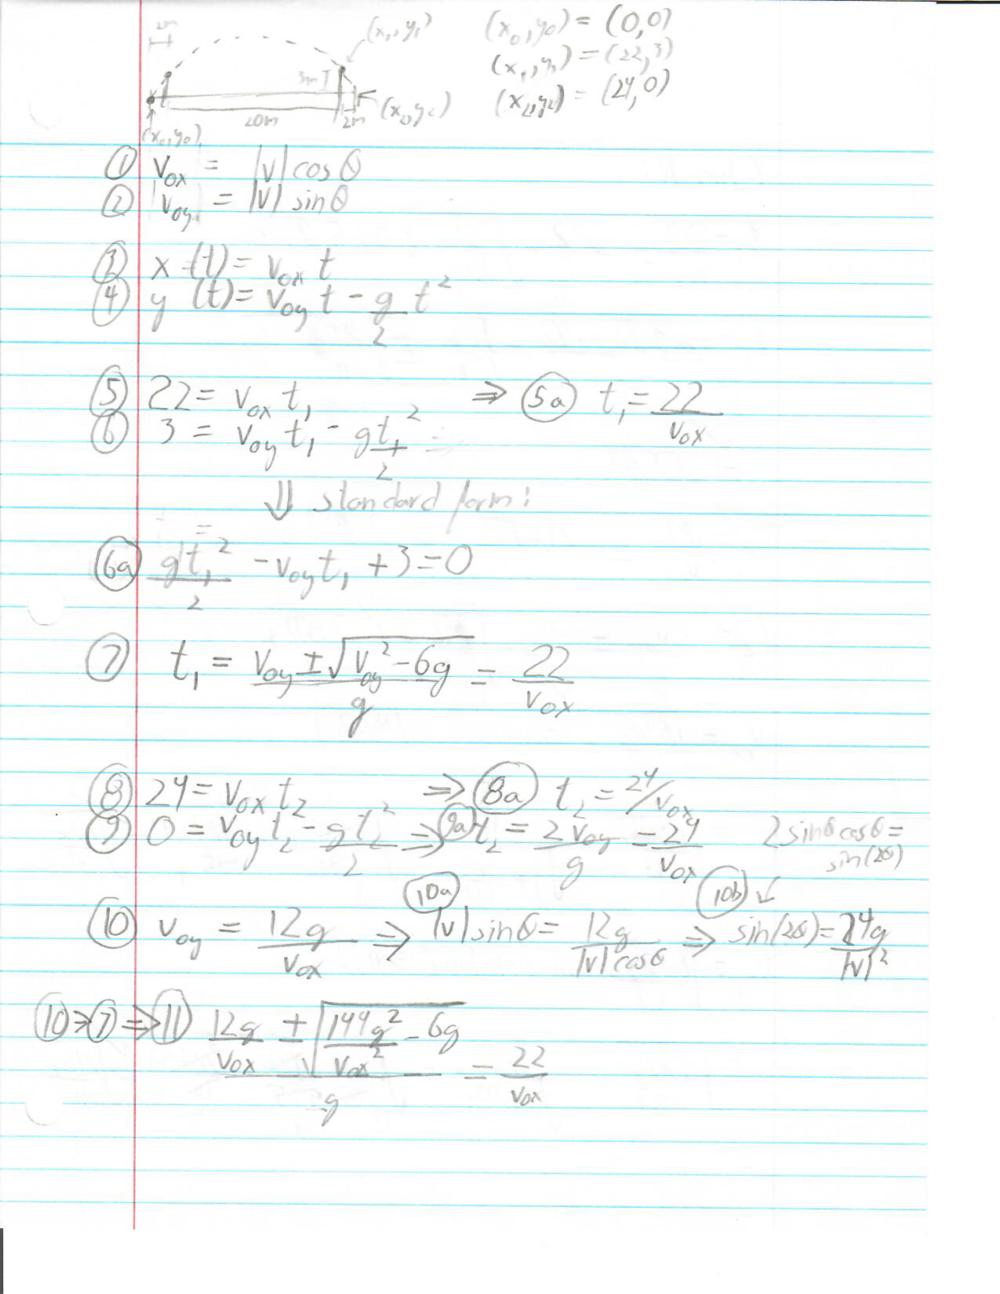 2m
(x₁,y₁)
(x₀,y₀) = (0,0)
(x₁,y₁) = (22,3)
(x₂,y₂) = (24,0)
3m
(x₂,y₂)
20m
2m
(x₀,y₀)
① v₀ₓ = |v| cos θ
② v₀y = |v| sin θ
③ x (t) = v₀ₓ t
④ y (t) = v₀y t - g/2 t²
⑤ 22 = v₀ₓ t₁ ⇒ (5a) t₁ = 22/v₀ₓ
⑥ 3 = v₀y t₁ - gt₁²/2
⇓ standard form:
(6a) gt₁²/2 - v₀y t₁ + 3 = 0
⑦ t₁ = (v₀y ± √(v₀y² - 6g))/g = 22/v₀ₓ
⑧ 24 = v₀ₓ t₂ ⇒ (8a) t₂ = 24/v₀ₓ
⑨ 0 = v₀y t₂ - gt₂²/2 ⇒ (9a) t₂ = 2v₀y/g = 24/v₀ₓ
2 sinθ cosθ =
sin(2θ)
⑩ v₀y = 12g/v₀ₓ ⇒ (10a) |v| sinθ = 12g/(|v| cosθ) ⇒ (10b) ↙ sin(2θ) = 24g/|v|²
⑩→⑦⇒⑪ (12g/v₀ₓ ± √(144g²/v₀ₓ² - 6g))/g = 22/v₀ₓ